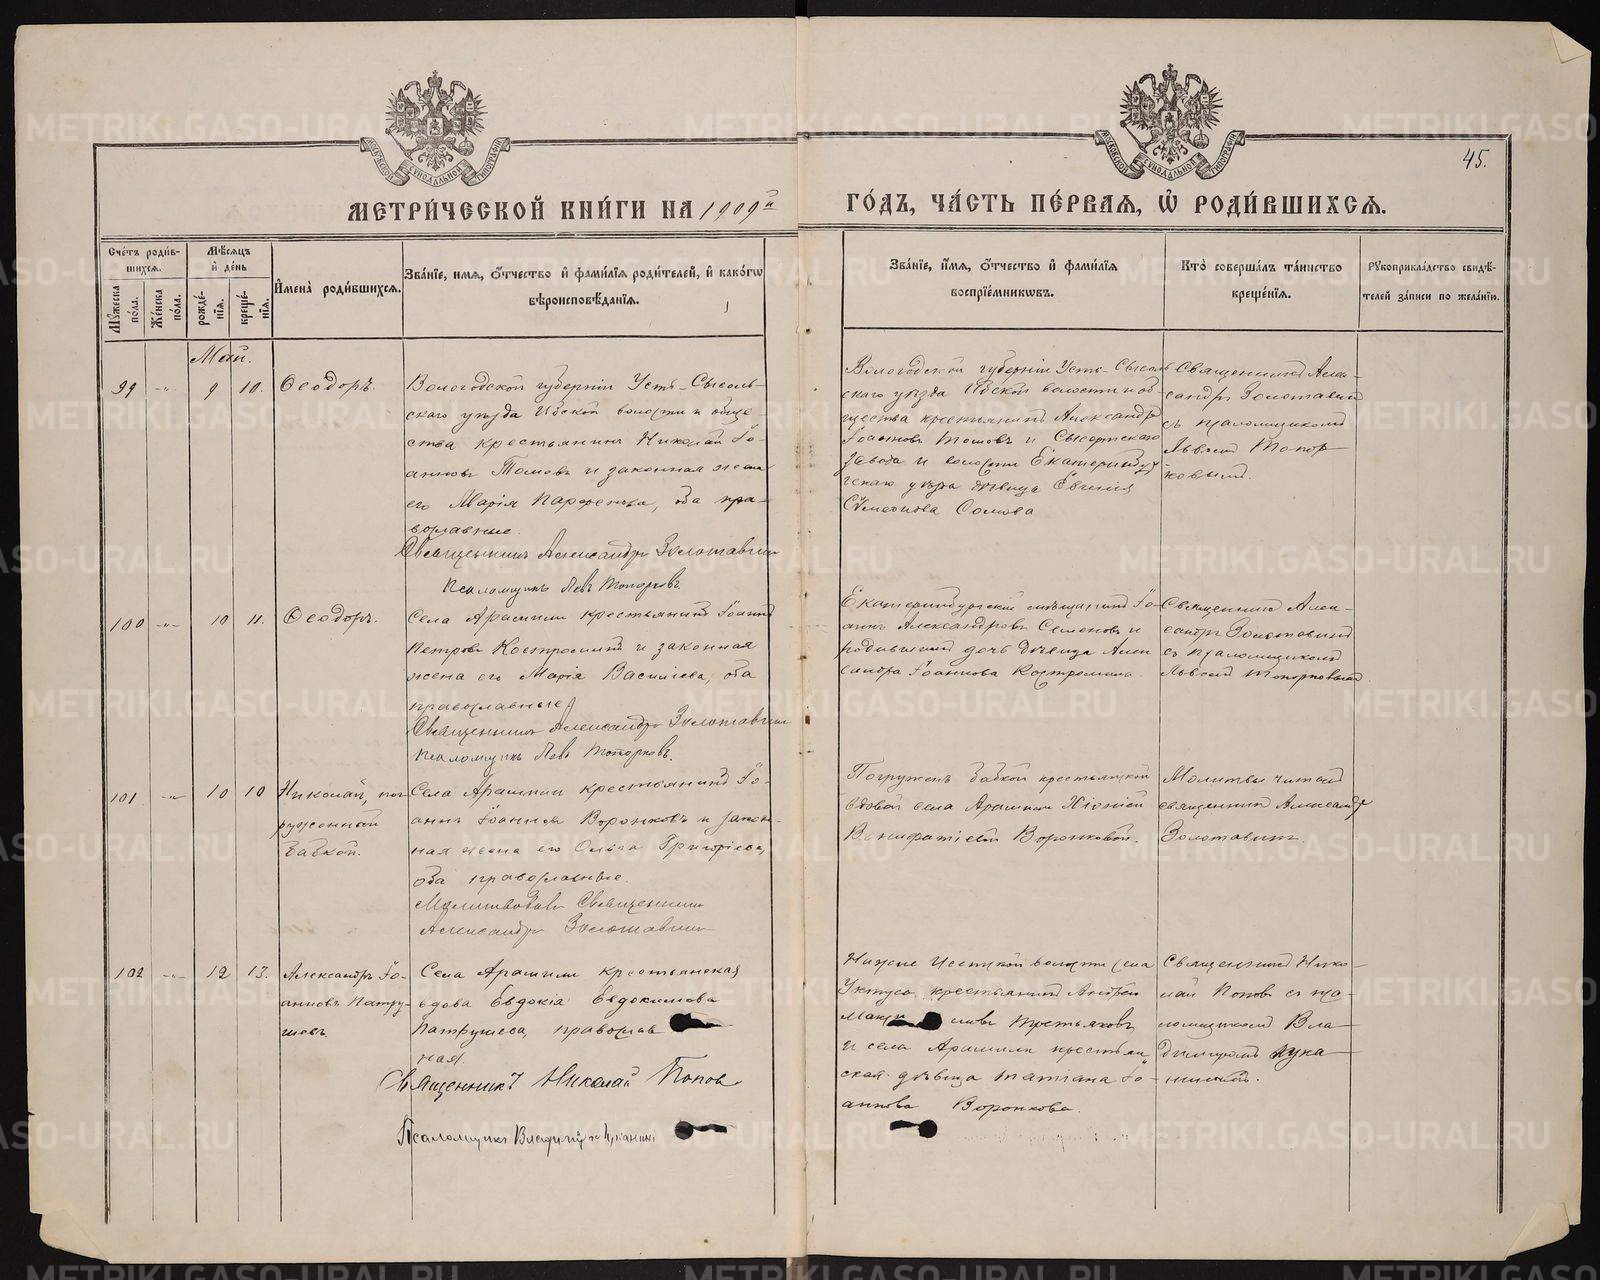 45.
МЕТРИ́ЧЕСКОЙ КНИ́ГИ НА 1909й ГО́ДЪ, ЧА́СТЬ ПЕ́РВАЯ, Ѡ҆ РОДИ́ВШИХСЯ.
Сче́тъ роди́в-
шихся.
Му́жеска по́ла.
Же́нска по́ла.
Мѣ́сяцъ
и҆ де́нь
рожде́-
нїя.
креще́-
нїя.
И҆мена̀ роди́вшихся.
Зва́нїе, имя, ѻ҆́тчество и҆ фами́лїя роди́телей, и҆ како́гѡ
вѣроисповѣ́данїя.
Зва́нїе, и҆́мя, ѻ҆́тчество и҆ фами́лїя
воспрїе́мникѡвъ.
Кто̀ соверша́лъ та́инство
креще́нїя.
Рꙋкоприкла́дство свидѣ́-
телей за́писи по жела́нїю.
Май.
99 -"- 9 10. Ѳеодоръ.
Вологодской губернiи Усть-Сысоль-
скаго уѣзда Ибской волости и обще-
ства крестьянинъ Николай Iо-
анновъ Томовъ и законная жена
его Марiя Парѳенъева, оба пра-
вославные.
Священникъ Александръ Золотавинъ
Псаломщикъ Левъ Топорковъ.
Вологодской губернiи Усть-Сысоль
скаго уѣзда Ибской волости и об-
щества крестьянинъ Александръ
Iоанновъ Томовъ и Сысертскаго
завода и волости Екатеринбур
гскаго уѣзда дѣвица Евгенiя
Симеонова Сомова
Священникъ Алек-
сандръ Золотавинъ
съ псаломщикомъ
Львомъ Топор-
ковымъ.
100 -"- 10 11. Ѳеодоръ.
Села Арамили крестьянинъ Iоаннъ
Петровъ Костроминъ и законная
жена его Марiя Васильева, оба
православные
Священникъ Александръ Золотавинъ
Псаломщикъ Левъ Топорковъ.
Екатеринбургскiй мѣщанинъ Iо-
аннъ Александровъ Семеновъ и
родившихъ дочь дѣвица Алек
сандра Iоаннова Костромина.
Священникъ Алек-
сандръ Золотавинъ
съ псаломщикомъ
Львомъ Топорковымъ.
101 -"- 10 10 Николай, пог-
руженный
бабкой.
Села Арамили крестьянинъ Iо-
аннъ Iоанновъ Воронковъ и закон-
ная жена его Ольга Григорiева,
оба православные.
Молитвовалъ Священникъ
Александръ Золотавинъ
Погруженъ бабкой крестьянской
вдовой села Арамили Хiонiей
Вонифатiевой Воронковой.
Молитвы читалъ
священникъ Александръ
Золотавинъ
102 -"- 12 13. Александръ Iо-
анновъ Патру-
шевъ.
Села Арамили крестьянская
вдова Евдокiя Евдокимова
Патрушева, православ
ная.
Священникъ Николай Поповъ
Псаломщикъ Владимiръ Луканинъ
Нижне Исетской волости села
Уктуса, крестьянинъ Андрей
Макси мовъ Третьяковъ
и села Арамили крестьян
ская дѣвица Татiана Iо-
аннова Воронкова.
Священникъ Нико-
лай Поповъ съ пса-
ломщикомъ Вла-
димiромъ Лука-
нинымъ.
METRIKI.GASO-URAL.RU